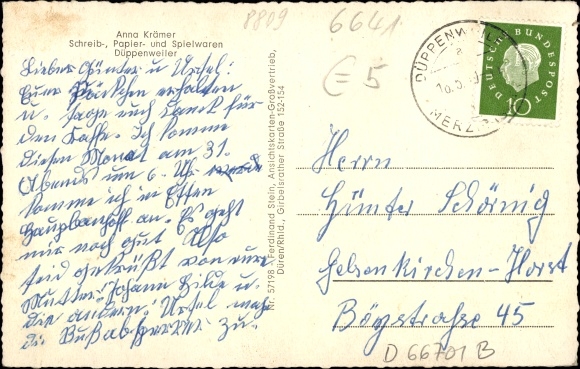 8809
6641
E5
Anna Krämer
Schreib-, Papier- und Spielwaren
Düppenweiler
Lieber Günter u. Ursel!
Euer Päckchen erhalten
u. sage euch Dank für
den Kaffe. Ich komme
diesen Monat am 31.
Abends um 6. Uhr
komme ich in Essen
Hauptbanhoff an. Es geht
mir noch gut Also
seid gegrüßt von eure
Mutter. Johann Hilde u.
die andern. Ursel mach
die zu.
Nr. 57198 Ferdinand Stein, Ansichtskarten-Großvertrieb,
Düren/Rhld., Girbelsrather Straße 152-154
DÜPPENWEILER
MERZIG
DEUTSCHE BUNDESPOST
10
Herrn
Günter Schörnig
Gelsenkirchen-Horst
Börgstraße 45
D 66701 B